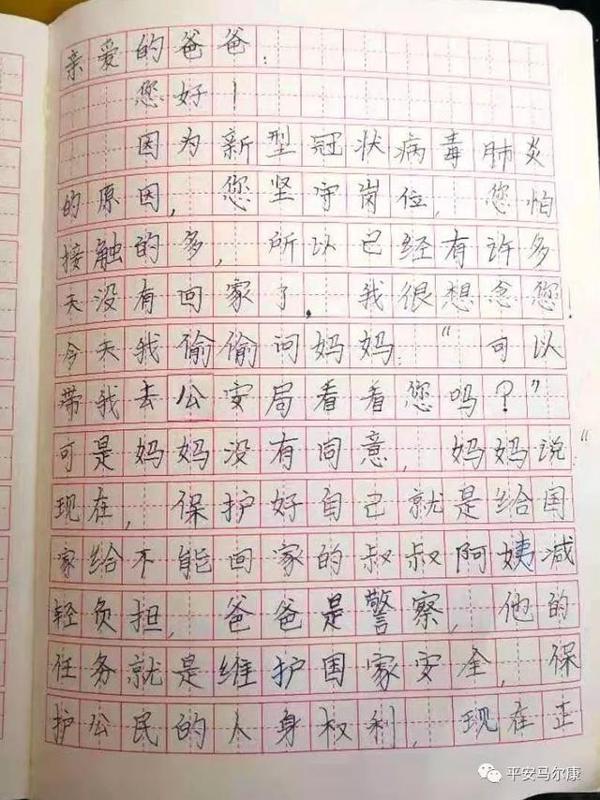 亲爱的爸爸:
您好!
因为新型冠状病毒肺炎
的原因,您坚守岗位,您怕
接触的多,所以已经有许多
天没有回家了,我很想念您,
今天我偷偷问妈妈:“可以
带我去公安局看看您吗?”
可是妈妈没有同意,妈妈说:“
现在,保护好自己就是给国
家给不能回家的叔叔阿姨减
轻负担,爸爸是警察,他的
任务就是维护国家安全,保
护公民的人身权利,现在正
平安马尔康